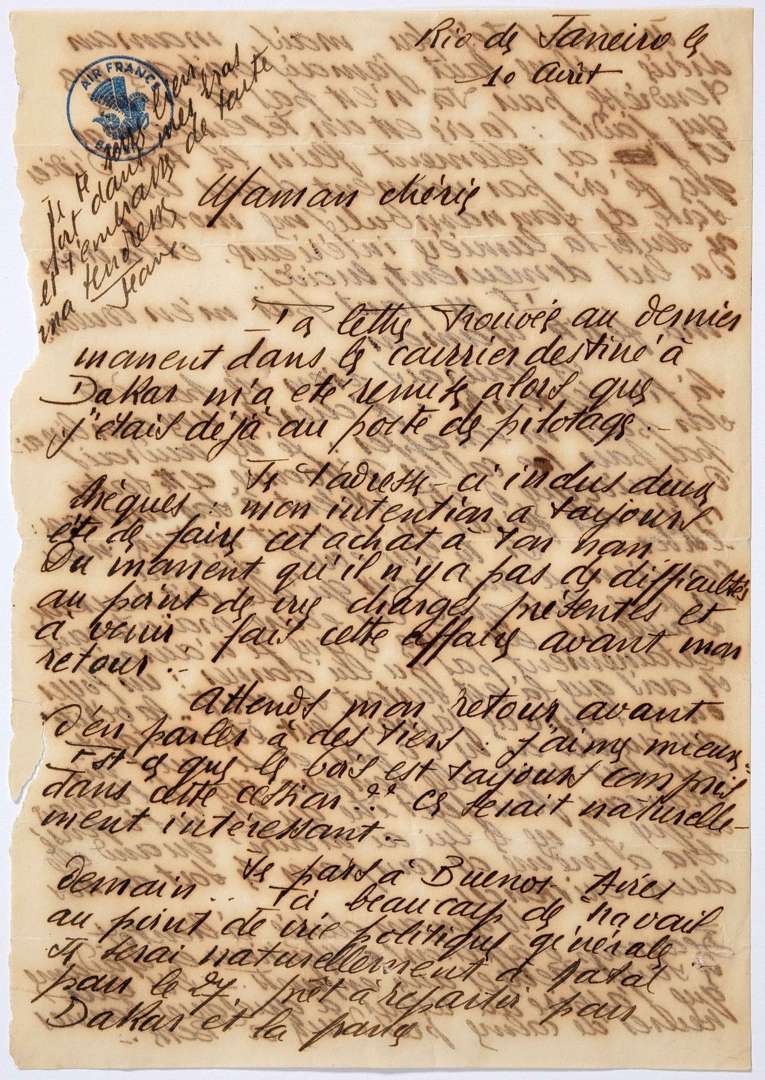 AIR FRANCE
Rio de Janeiro le
10 Avril
Je te serre bien
fort dans mes bras
et t'embrasse de toute
ma tendresse
Jean
Maman chérie
Ta lettre trouvée au dernier
moment dans le courrier destiné à
Dakar m'a été remise alors que
j'étais déjà au poste de pilotage.
Je t'adresse ci inclus deux
chèques : mon intention a toujours
été de faire cet achat à ton nom
Du moment qu'il n'y a pas de difficultés
au point de vue charges présentes et
à venir fais cette affaire avant mon
retour.
Attends mon retour avant
d'en parler à des tiers : j'aime mieux.
Est-ce que le bois est toujours compris
dans cette cession ?? ce serait naturelle-
ment intéressant.
Je pars à Buenos-Aires
demain.. Ici beaucoup de travail
au point de vue politique générale
Je serai naturellement à Natal
pour le 27. prêt à repartir pour
Dakar et la